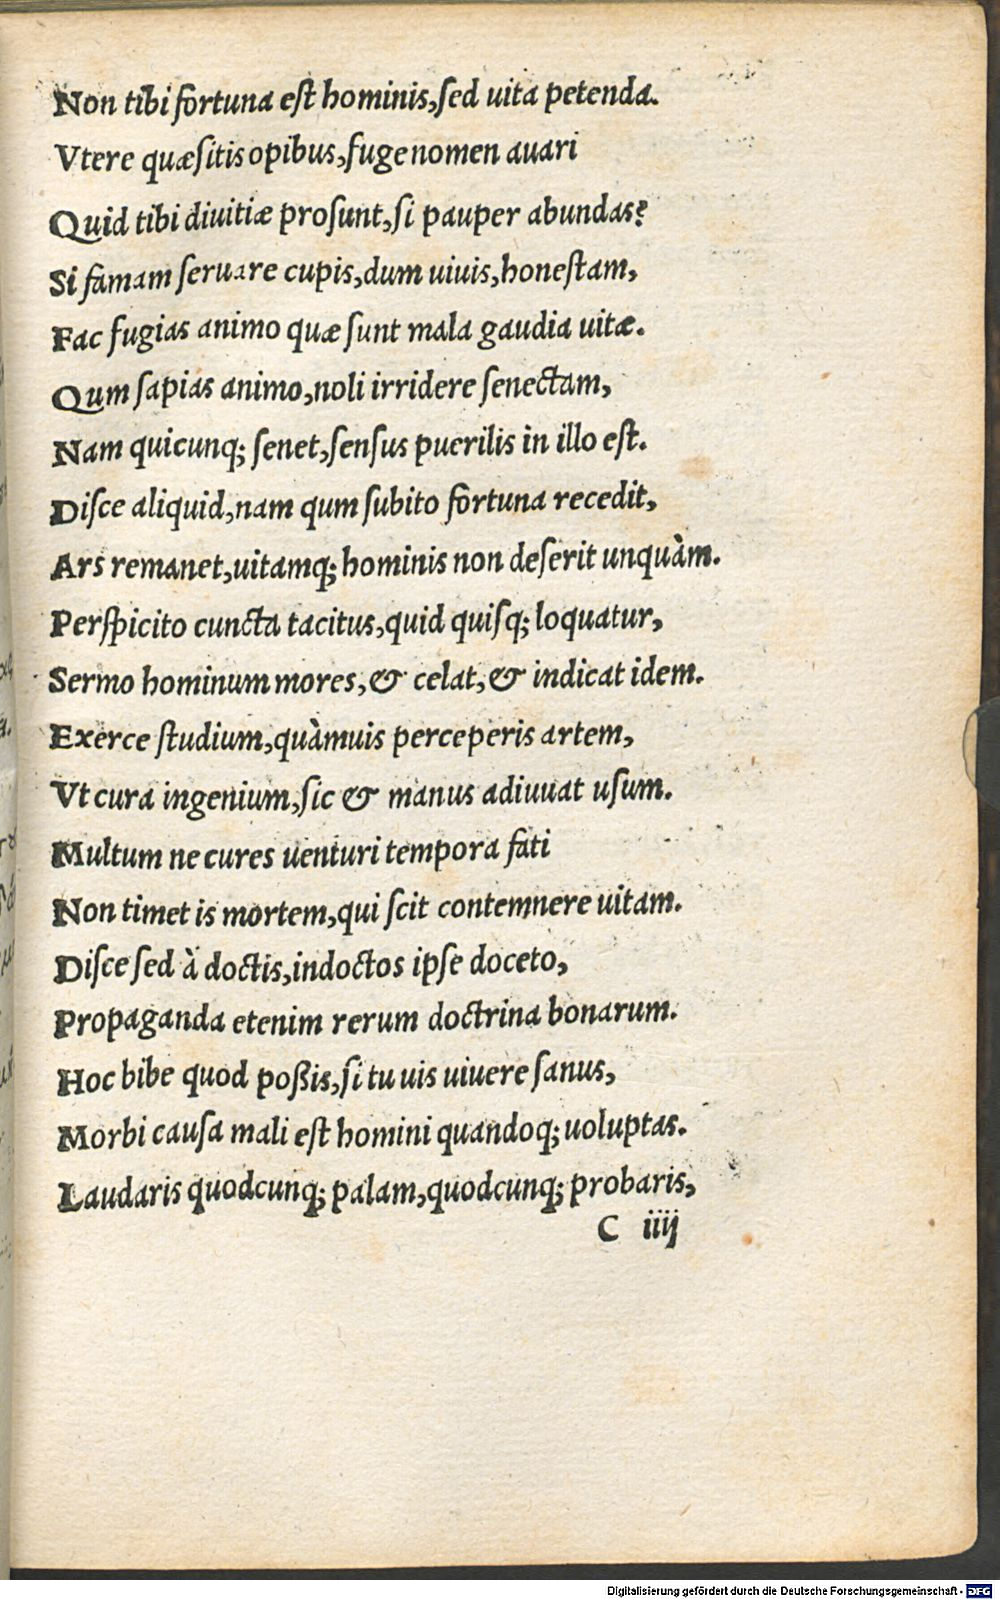 Non tibi fortuna est hominis,sed uita petenda.
Vtere quæsitis opibus,fuge nomen auari
Quid tibi diuitiæ prosunt,si pauper abundas?
Si famam seruare cupis,dum uiuis,honestam,
Fac fugias animo quæ sunt mala gaudia uitæ.
Qum sapias animo,noli irridere senectam,
Nam quicunq; senet,sensus puerilis in illo est.
Disce aliquid,nam qum subito fortuna recedit,
Ars remanet,uitamq; hominis non deserit unquàm.
Perspicito cuncta tacitus,quid quisq; loquatur,
Sermo hominum mores,& celat,& indicat idem.
Exerce studium,quàmuis perceperis artem,
Vt cura ingenium,sic & manus adiuuat usum.
Multum ne cures uenturi tempora fati
Non timet is mortem,qui scit contemnere uitam.
Disce sed à doctis,indoctos ipse doceto,
Propaganda etenim rerum doctrina bonarum.
Hoc bibe quod poßis,si tu uis uiuere sanus,
Morbi causa mali est homini quandoq; uoluptas.
Laudaris quodcunq; palam,quodcunq; probaris,
C iiij
Digitalisierung gefördert durch die Deutsche Forschungsgemeinschaft - DFG